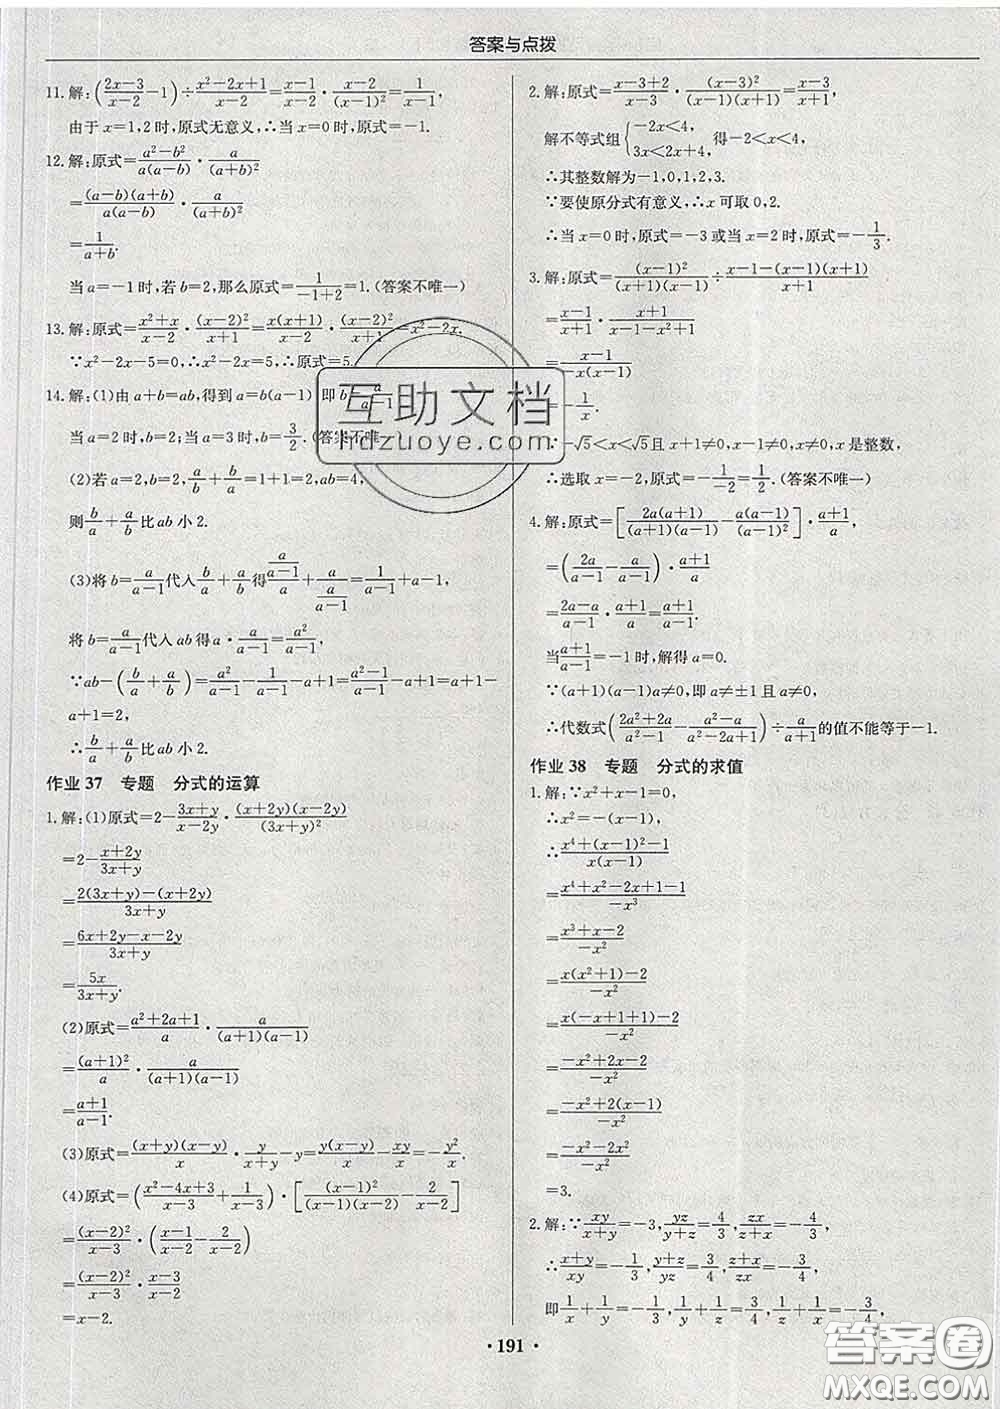 答案与点拨
11.解:((2x-3)/(x-2)-1)÷(x²-2x+1)/(x-2)=(x-1)/(x-2)·(x-2)/(x-1)²=1/(x-1),
由于x=1,2时,原式无意义,∴当x=0时,原式=-1.
12.解:原式=(a²-b²)/(a(a-b))·a/(a+b)²
=((a-b)(a+b))/(a(a-b))·a/(a+b)²
=1/(a+b).
当a=-1时,若b=2,那么原式=1/(-1+2)=1.(答案不唯一)
13.解:原式=(x²+x)/(x-2)·(x-2)²/(x+1)=(x(x+1))/(x-2)·(x-2)²/(x+1)=x²-2x.
∵x²-2x-5=0,∴x²-2x=5,∴原式=5.
14.解:(1)由a+b=ab,得到a=b(a-1) 即b=a/(a-1)
当a=2时,b=2;当a=3时,b=3/2.(答案不唯
(2)若a=2,b=2,a/b+b/a=1+1=2,ab=4,
则b/a+a/b比ab小2.
(3)将b=a/(a-1)代入b/a+a/b得(a/(a-1))/a+a/(a/(a-1))=1/(a-1)+a-1,
将b=a/(a-1)代入ab得a·a/(a-1)=a²/(a-1),
∵ab-(b/a+a/b)=a²/(a-1)-1/(a-1)-a+1=(a²-1)/(a-1)-a+1=a+1-
a+1=2,
∴b/a+a/b比ab小2.
作业37 专题 分式的运算
1.解:(1)原式=2-(3x+y)/(x-2y)·((x+2y)(x-2y))/(3x+y)²
=2-(x+2y)/(3x+y)
=(2(3x+y)-(x+2y))/(3x+y)
=(6x+2y-x-2y)/(3x+y)
=5x/(3x+y).
(2)原式=(a²+2a+1)/a·a/((a+1)(a-1))
=(a+1)²/a·a/((a+1)(a-1))
=(a+1)/(a-1).
(3)原式=((x+y)(x-y))/x·y/(x+y)-y=(y(x-y))/x-xy/x=-y²/x.
(4)原式=((x²-4x+3)/(x-3)+1/(x-3))·[(x-1)²/((x-1)(x-2))-2/(x-2)]
=(x-2)²/(x-3)·((x-1)/(x-2)-2/(x-2))
=(x-2)²/(x-3)·(x-3)/(x-2)
=x-2.
2.解:原式=(x-3+2)/(x-3)·(x-3)²/((x-1)(x+1))=(x-3)/(x+1),
解不等式组{-2x<4, 3x<2x+4, 得-2<x<4,
∴其整数解为-1,0,1,2,3.
∵要使原分式有意义,∴x可取0,2.
∴当x=0时,原式=-3或当x=2时,原式=-1/3.
3.解:原式=(x-1)²/((x+1)(x-1))÷(x-1-(x-1)(x+1))/(x+1)
=(x-1)/(x+1)·(x+1)/(x-1-x²+1)
=(x-1)/(-x(x-1))
=-1/x.
∵-√5<x<√5且x+1≠0,x-1≠0,x≠0,x是整数,
∴选取x=-2,原式=-1/(-2)=1/2.(答案不唯一)
4.解:原式=[2a(a+1)/((a+1)(a-1))-a(a-1)/(a-1)²]·(a+1)/a,
=(2a/(a-1)-a/(a-1))·(a+1)/a
=(2a-a)/(a-1)·(a+1)/a=(a+1)/(a-1).
当(a+1)/(a-1)=-1时,解得a=0.
∵(a+1)(a-1)a≠0,即a≠±1且a≠0,
∴代数式((2a²+2a)/(a²-1)-(a²-a)/(a²-2a+1))÷a/(a+1)的值不能等于-1.
作业38 专题 分式的求值
1.解:∵x²+x-1=0,
∴x²=-(x-1),
∴(x⁴+(x-1)²-1)/(x(x-1))
=(x⁴+x²-2x+1-1)/(-x³)
=(x³+x-2)/(-x²)
=(x(x²+1)-2)/(-x²)
=(x(-x+1+1)-2)/(-x²)
=(-x²+2x-2)/(-x²)
=(-x²+2(x-1))/(-x²)
=(-x²-2x²)/(-x²)
=3.
2.解:∵xy/(x+y)=-3,yz/(y+z)=4/3,zx/(z+x)=-4/3,
∴(x+y)/xy=-1/3,(y+z)/yz=3/4,(z+x)/zx=-3/4,
即1/x+1/y=-1/3,1/y+1/z=3/4,1/z+1/x=-3/4,
·191·
互助文档
huzuoye.com
答案圈
MXQE.COM